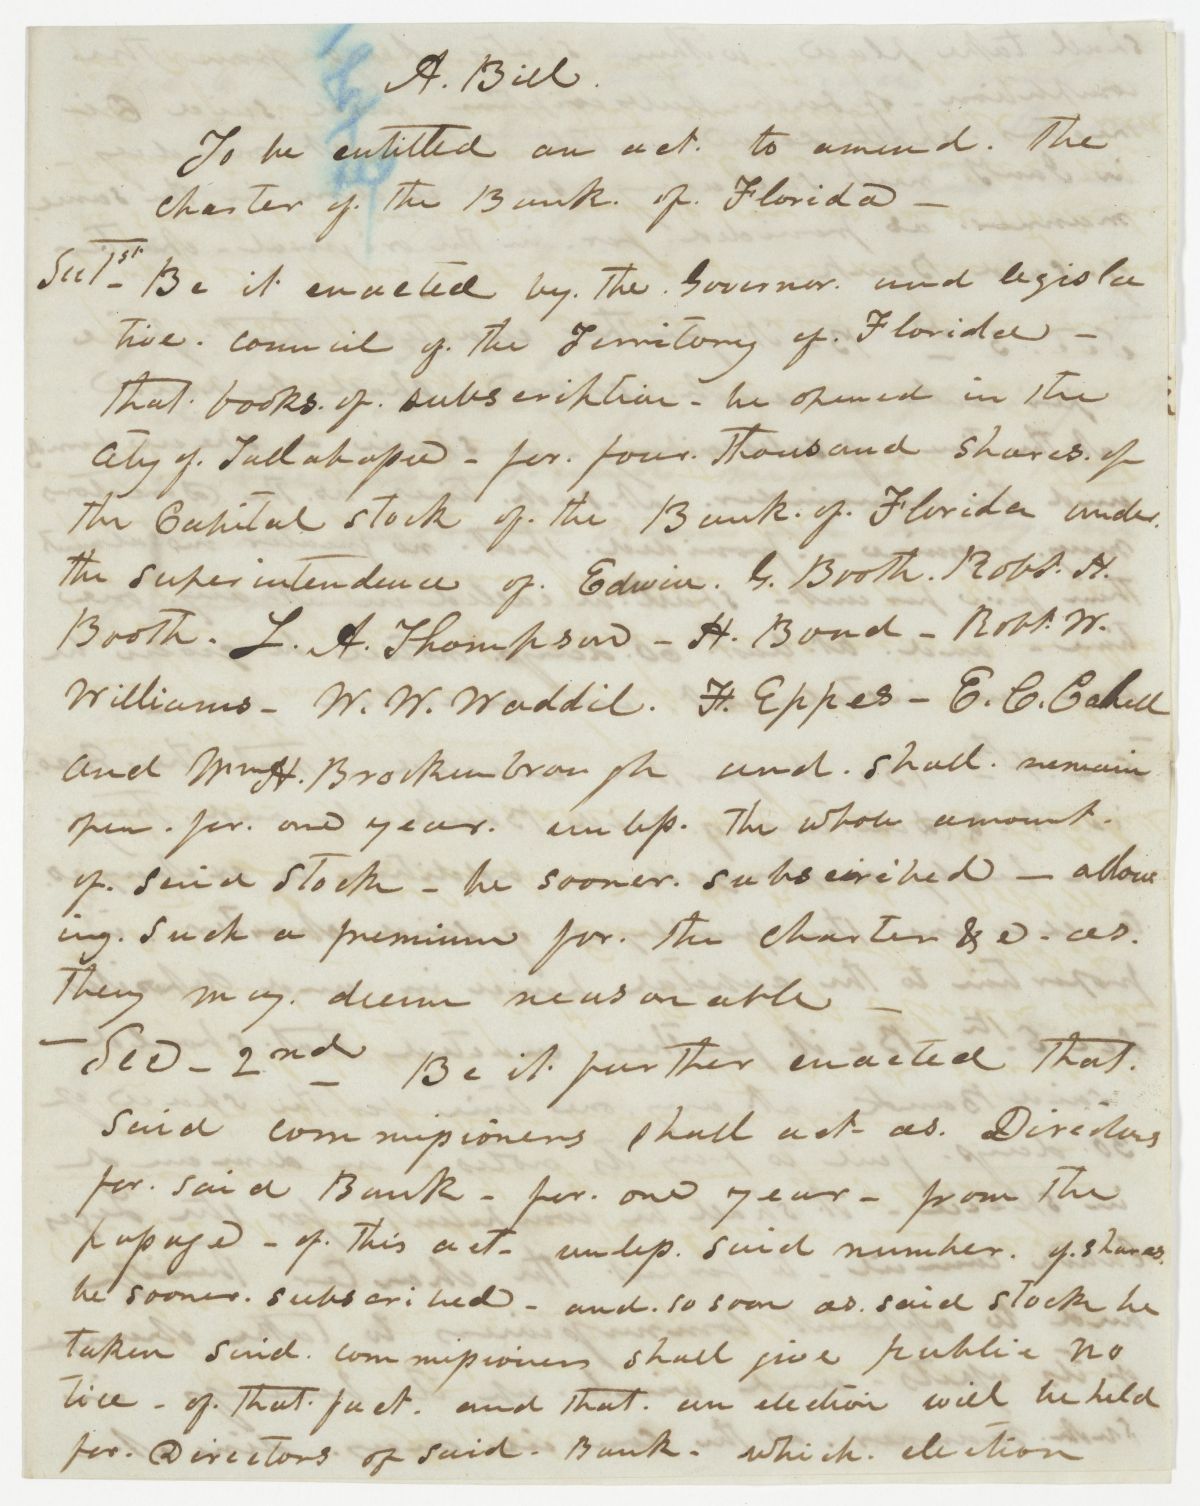 A. Bill.
To be entitled an act. to amend. the
charter of. the Bank. of. Florida —
Sec 1st - Be it enacted by. the. Governor. and legisla
tive. council of. the Territory of. Florida —
that. books. of. subscription - be opened in the
City of. Tallahassee - for. four. thousand shares. of
the Capital stock of. the Bank. of. Florida under.
the superintendence of. Edwin. G. Booth. Robt. H.
Booth. L. A. Thompson - H. Bond - Robt. W.
Williams - W. W. Waddil. F. Eppes - E. C. Cabell
and Wm H. Brockenbrough and. shall. remain
open. for. one year. unless. the whole amount.
of. said stock - be sooner. subscribed — allow
ing. such a premium for. the charter &c - as.
they may. deem reasonable —
— Sec - 2nd - Be it further enacted that.
said commissioners shall act as. Directors
for. said Bank - for. one year - from the
passage - of. this act - unless. said number. of. shares.
be sooner. subscribed - and. so soon as. said stock be
taken said. commissioners shall give public no
tice - of. that. fact. and that. an election will be held
for. Directors of said. Bank - which. election